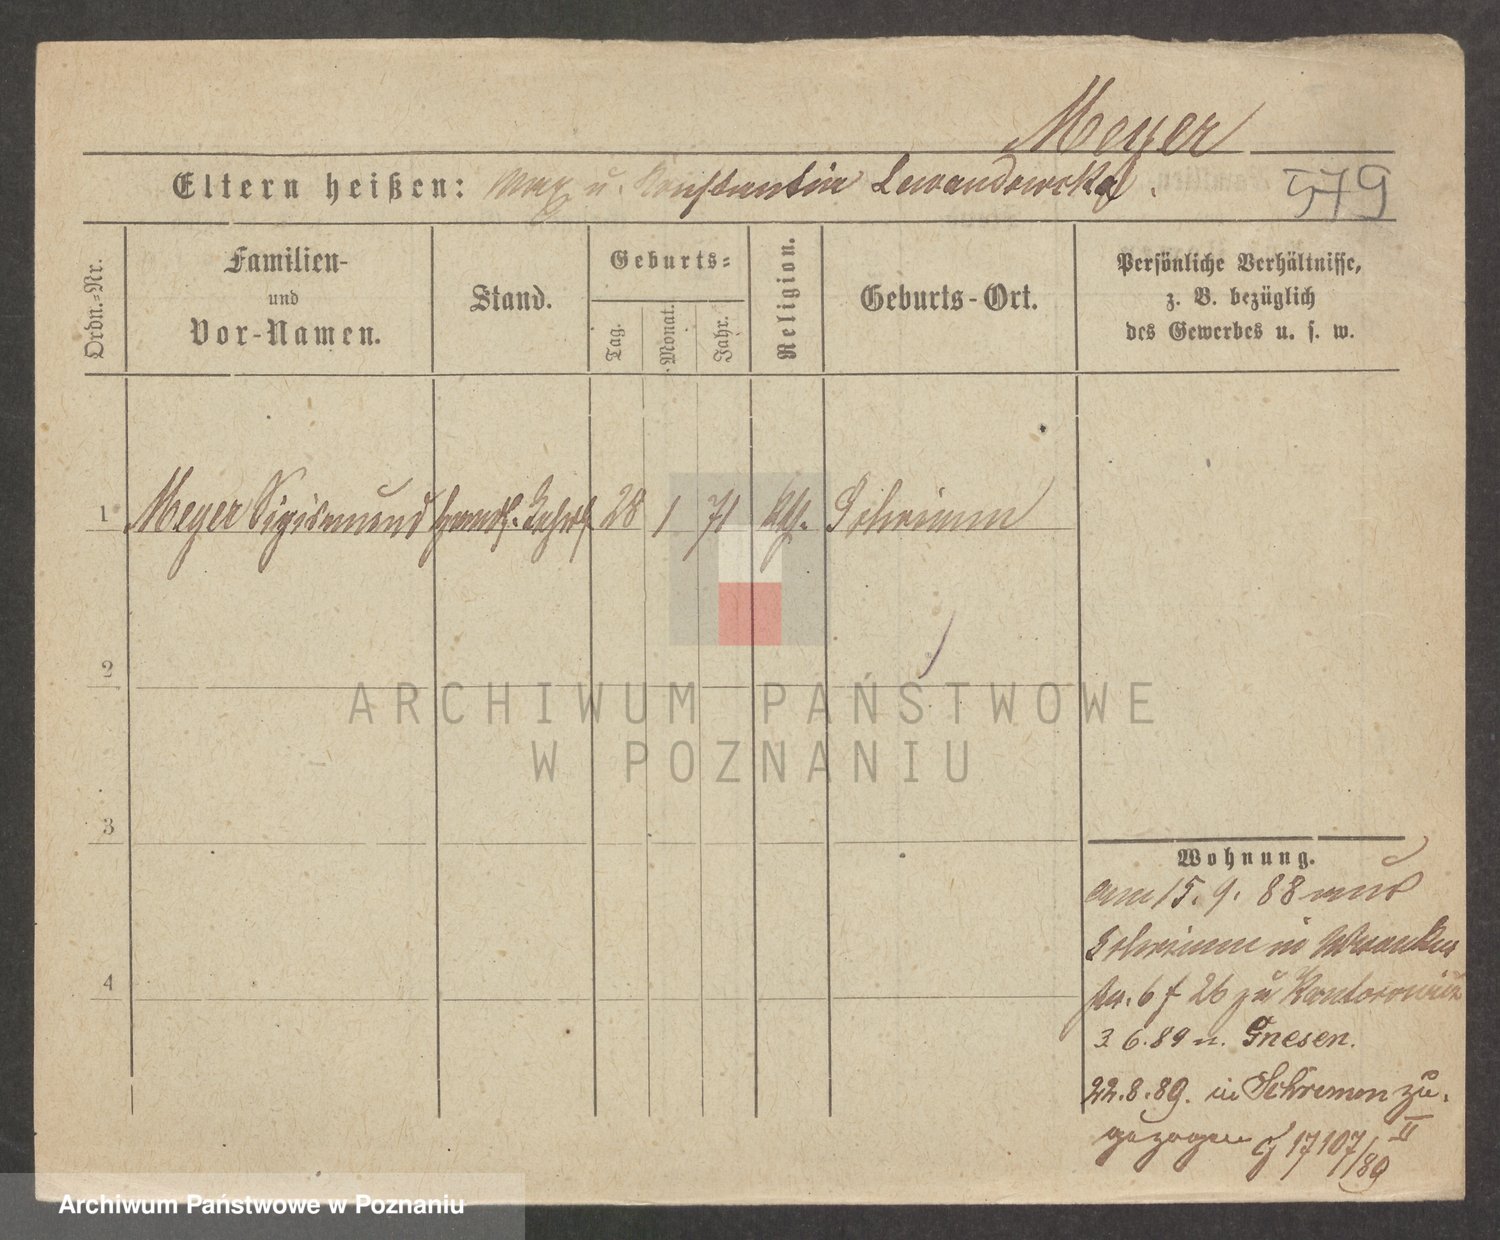 Meyer
Eltern heißen: Max u. Konstantin Lewandowska.
579
Ordn.=Nr.
Familien-
und
Vor-Namen.
Stand.
Geburts=
Tag.
Monat.
Jahr.
Religion.
Geburts-Ort.
Persönliche Verhältnisse,
z. B. bezüglich
des Gewerbes u. s. w.
1 Meyer Sigismund 28 1 71 Schrimm
2
3
4
Wohnung.
am 15. 9. 88 aus
Schrimm in
26 zu
3 6.89 n. Gnesen.
22.8.89. in Schrimm zu-
gezogen 17107/89 II
ARCHIWUM PAŃSTWOWE
W POZNANIU
Archiwum Państwowe w Poznaniu